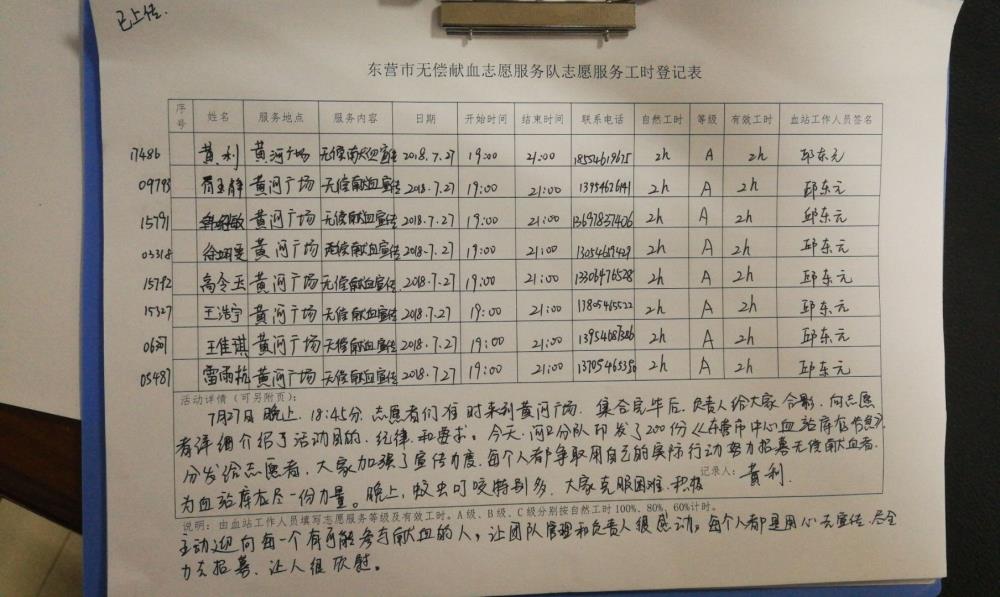 已上传.
东营市无偿献血志愿服务队志愿服务工时登记表
序号 姓名 服务地点 服务内容 日期 开始时间 结束时间 联系电话 自然工时 等级 有效工时 血站工作人员签名
17486 黄利 黄河广场 无偿献血宣传 2018.7.27 19:00 21:00 18554619675 2h A 2h 邱东元
09793 黄河广场 无偿献血宣传 2018.7.27 19:00 21:00 2h A 2h 邱东元
15791 黄河广场 无偿献血宣传 2018.7.27 19:00 21:00 13697837406 2h A 2h 邱东元
03318 黄河广场 无偿献血宣传 2018.7.27 19:00 21:00 13054679429 2h A 2h 邱东元
15792 高令玉 黄河广场 无偿献血宣传 2018.7.27 19:00 21:00 13306476528 2h A 2h 邱东元
15327 王浩宇 黄河广场 无偿献血宣传 2018.7.27 19:00 21:00 13805465522 2h A 2h 邱东元
王佳琪 黄河广场 无偿献血宣传 2018.7.27 19:00 21:00 2h A 2h 邱东元
05487 雷雨杭 黄河广场 无偿献血宣传 2018.7.27 19:00 21:00 13705465350 2h A 2h 邱东元
活动详情（可另附页）：
7月27日晚上18:45分.志愿者们准时来到黄河广场.集合完毕后.负责人给大家合影.向志愿
者详细介绍了活动目的、纪律和要求。今天.河口分队印发了200份《东营市中心血站库存信息》
分发给志愿者.大家加强了宣传力度.每个人都争取用自己的实际行动努力招募无偿献血者.
记录人：黄利
为血站库存尽一份力量。晚上,蚊虫叮咬特别多.大家克服困难.积极
说明：由血站工作人员填写志愿服务等级及有效工时。A级、B级、C级分别按自然工时100%、80%、60%计时。
主动迎向每一个有可能参与献血的人,让团队管理和负责人很感动。每个人都是用心去宣传.尽全
力去招募.让人很欣慰。